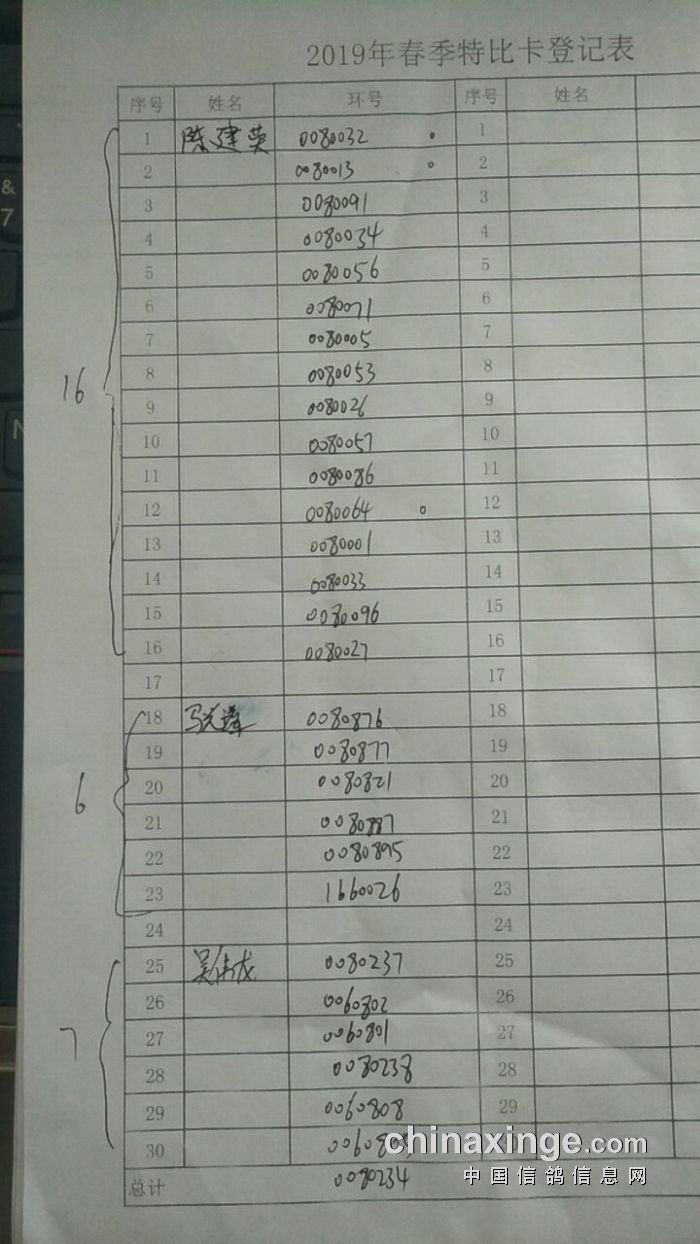 2019年春季特比卡登记表
序号 姓名 环号 序号 姓名
1 陈建英 0080032 1
2 0080013 2
3 0080091 3
4 0080034 4
5 0080056 5
6 0080071 6
7 0080005 7
8 0080053 8
16
9 0080026 9
10 0080057 10
11 0080086 11
12 0080064 12
13 0080001 13
14 0080033 14
15 0080096 15
16 0080027 16
17 17
18 0080876 18
19 0080877 19
20 0080821 20
6
21 0080887 21
22 0080895 22
23 1660026 23
24 24
25 吴伟龙 0080237 25
26 0060802 26
27 0060801 27
7
28 0080238 28
29 0060808 29
30
chinaxinge.com
总计 0080234
中国信鸽信息网
& 7
N